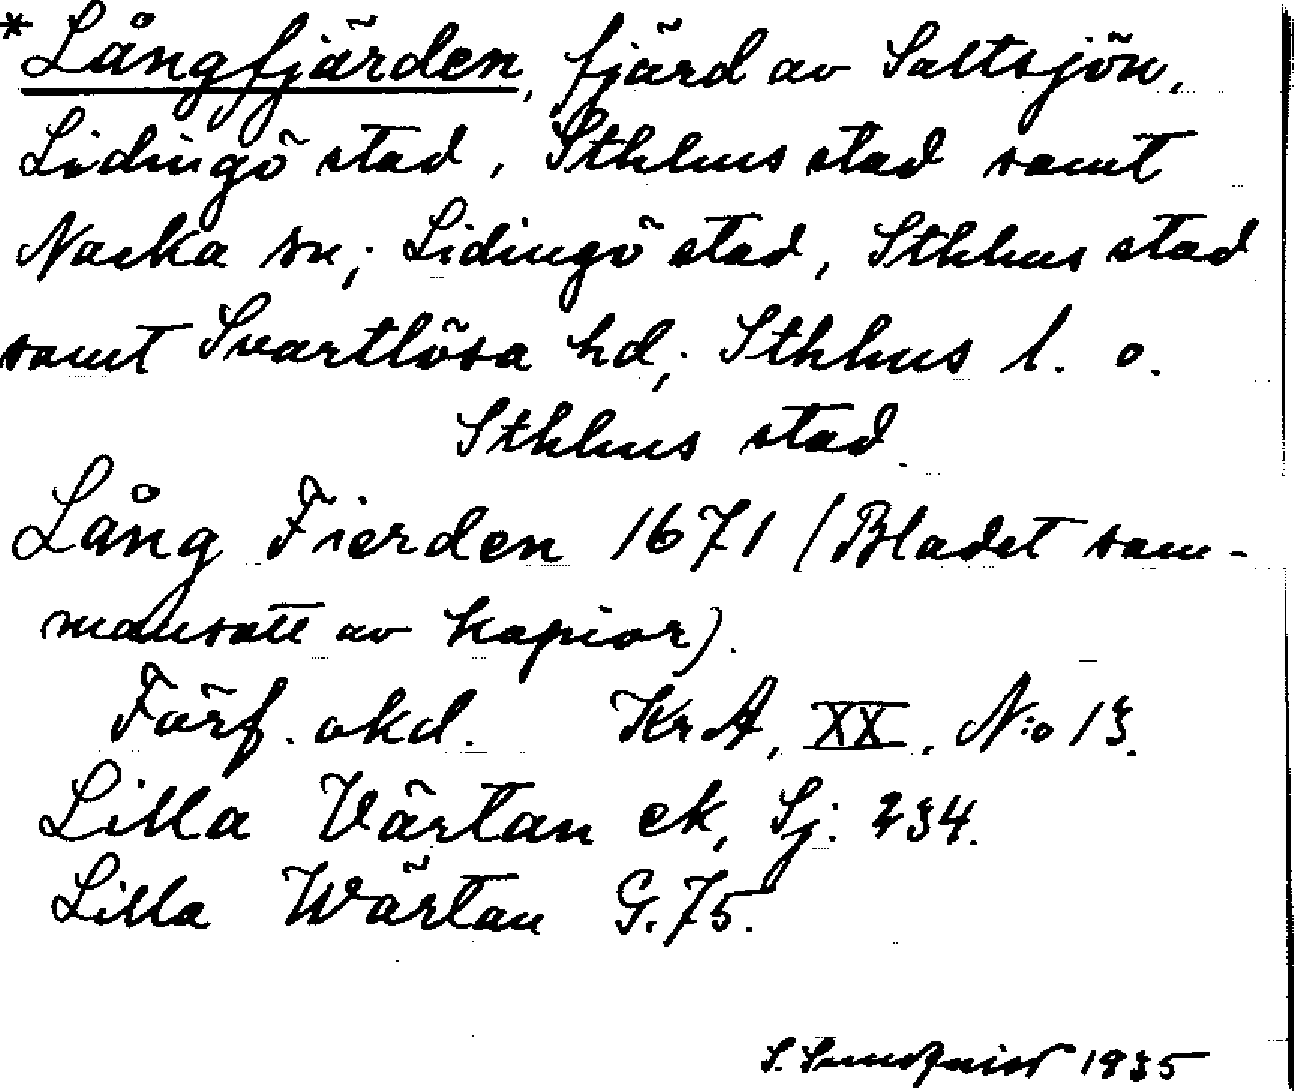 *Långfjärden, fjärd av Saltsjön,
Lidingö stad, Sthlms stad samt
Nacka sn; Lidingö stad, Sthlms stad
samt Svartlösa hd; Sthlms l. o.
Sthlms stad.
Lång Fierden 1671 (Bladet sam-
mansatt av kopior).
Förf. okd. KrA, XX, N:o 13.
Lilla Värtan ek, Sj: 234.
Lilla Wärtan G.75.
S. Sundqvist 1935